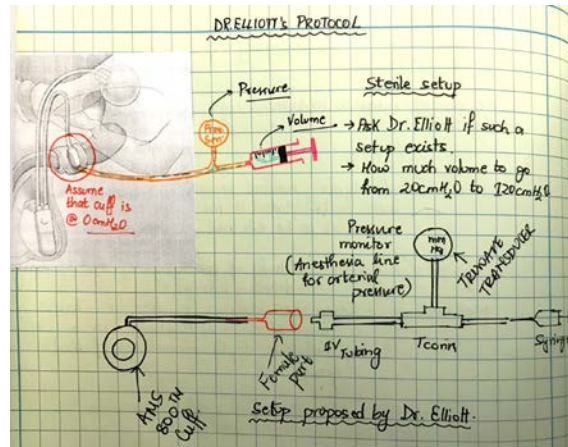 DR.ELLIOTT's PROTOCOL
Pressure
Sterile setup
Volume
→ Ask Dr. Elliott if such a
setup exists.
→ How much volume to go
from 20cmH2O to 120cmH2O
Assume
that cuff is
@ 0cmH2O
Pressure
monitor
(Anesthesia line
for arterial
pressure)
mm
Hg
TRUWAVE
TRANSDUCER
Female
part
IV Tubing
T conn
Syringe
AMS
800TM
Cuff.
Setup proposed by Dr. Elliott.